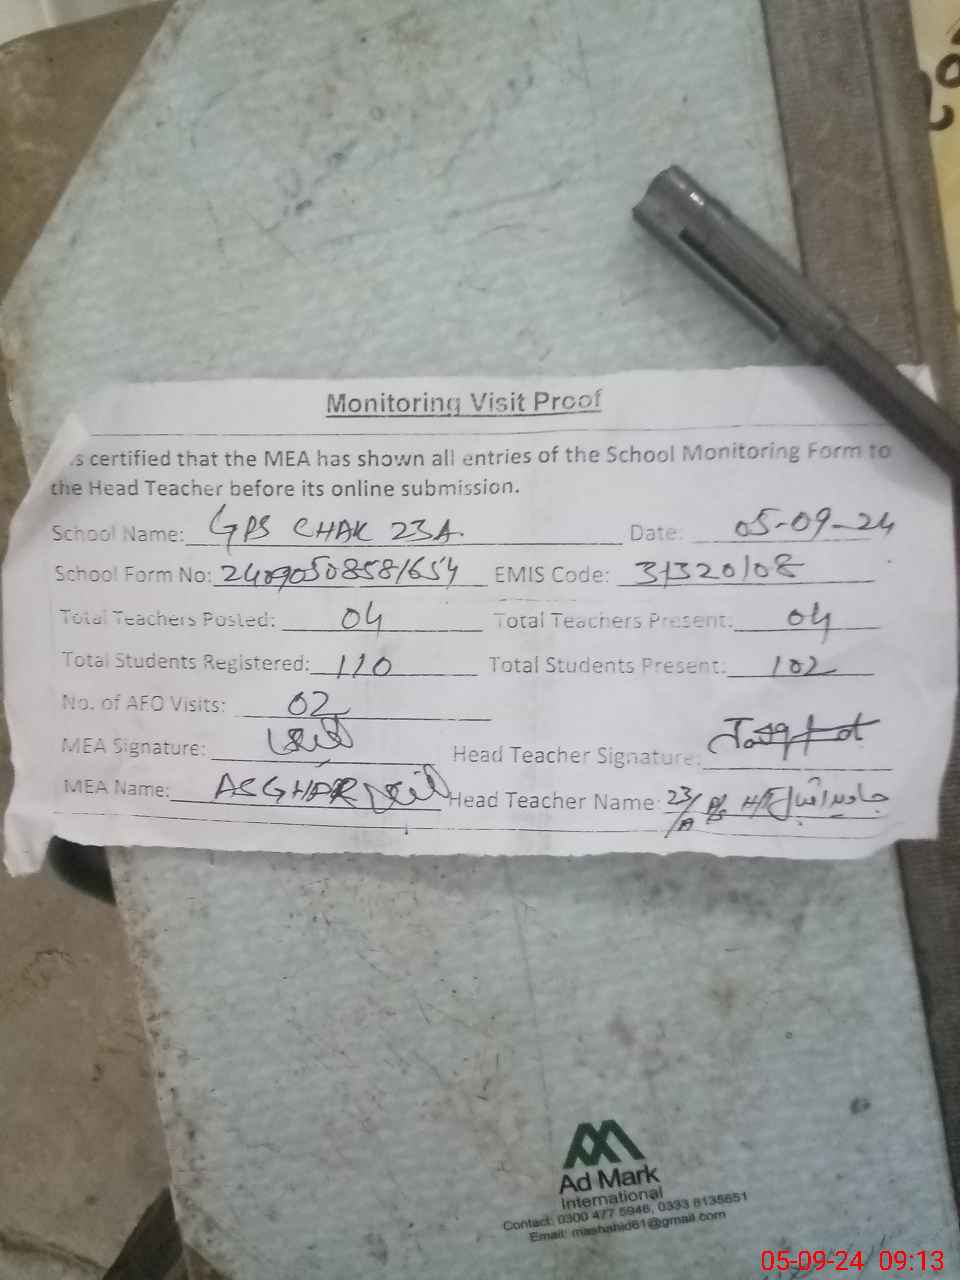 Monitoring Visit Proof
s certified that the MEA has shown all entries of the School Monitoring Form to
the Head Teacher before its online submission.
School Name: GPS CHAK 23A. Date: 05-09-24
School Form No: 24090508581654 EMIS Code: 31320108
Total Teachers Posted: 04 Total Teachers Present: 04
Total Students Registered: 110 Total Students Present: 102
No. of AEO Visits: 02
MEA Signature: Head Teacher Signature:
MEA Name: ASGHAR Head Teacher Name: جاوید اقبال H/T P/S 23/A
Ad Mark
International
Contact: 0300 477 5946, 0333 8135651
Email: mashahid61@gmail.com
05-09-24 09:13